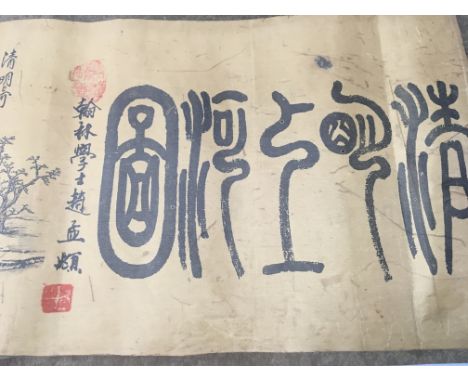 清明上河圖
翰林學士趙孟頫
清明